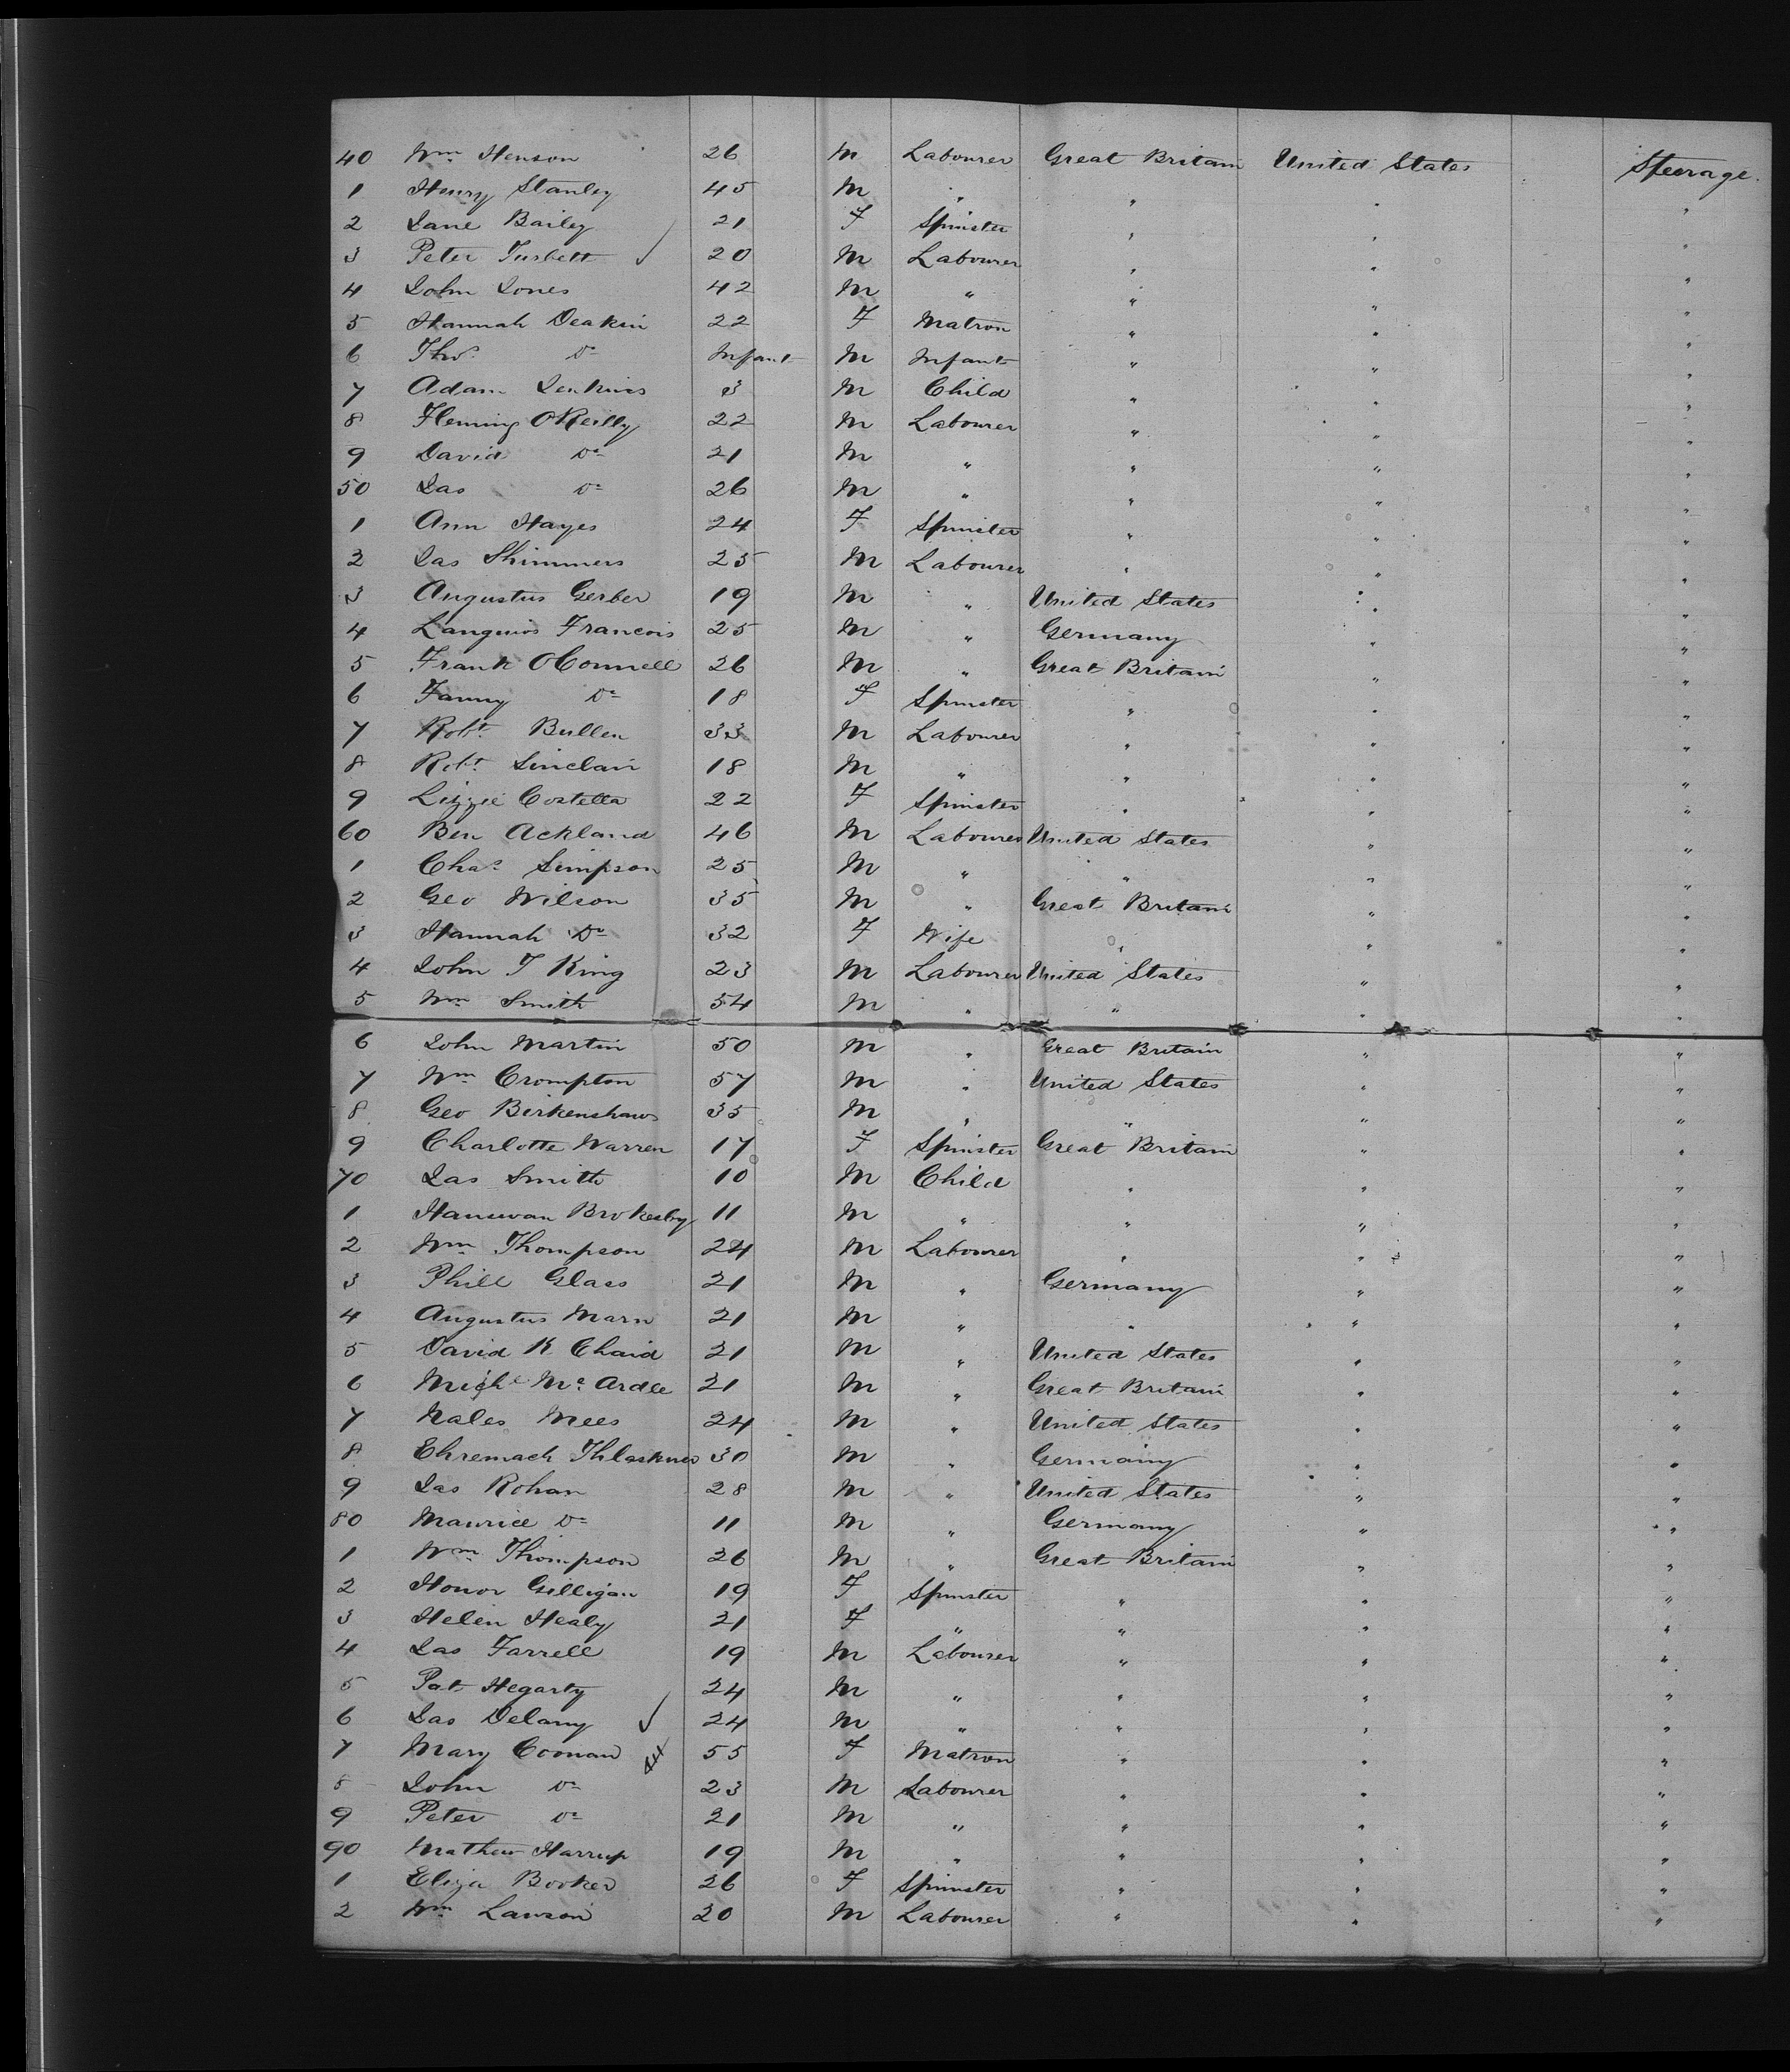 40 Wm Henson 26 M Labourer Great Britain United States Steerage.
1 Henry Stanley 45 M " " " "
2 Jane Bailey 21 F Spinster " " "
3 Peter Tusbett ✓ 20 M Labourer " " "
4 John Jones 42 M " " " "
5 Hannah Deakin 22 F Matron " " "
6 Thos Do Infant M Infant " " "
7 Adam Jenkins 3 M Child " " "
8 Fleming O'Reilly 22 M Labourer " " "
9 David Do 21 M " " " "
50 Jas Do 26 M " " " "
1 Ann Hayes 24 F Spinster " " "
2 Jas Shimmers 25 M Labourer " " "
3 Augustus Gerber 19 M " United States " "
4 Francois 25 M " Germany " "
5 Frank O'Connell 26 M " Great Britain " "
6 Fanny Do 18 F Spinster " " "
7 Robt Bullen 33 M Labourer " " "
8 Robt Sinclair 18 M " " " "
9 Lizzie Costella 22 F Spinster " " "
60 Ben Ackland 46 M Labourer United States " "
1 Chas Simpson 25 M " " " "
2 Geo Wilson 35 M " Great Britain " "
3 Hannah Do 32 F Wife " " "
4 John T King 23 M Labourer United States " "
5 Wm Smith 54 M " " " "
6 John Martin 50 M " Great Britain " "
7 Wm Crompton 57 M " United States " "
8 Geo Birkenshaw 35 M " " " "
9 Charlotte Warren 17 F Spinster Great Britain " "
70 Jas Smith 10 M Child " " "
1 Brokesby 11 M " " " "
2 Wm Thompson 24 M Labourer " " "
3 Phill Glass 21 M " Germany " "
4 Augustus Marn 21 M " " " "
5 David K Chaid 21 M " United States " "
6 Michl McArdle 21 M " Great Britain " "
7 Mees 24 M " United States " "
8 30 M " Germany " "
9 Jas Rohan 28 M " United States " "
80 Maurice Do 11 M " Germany " "
1 Wm Thompson 26 M " Great Britain " "
2 Honor Gilligan 19 F Spinster " " "
3 Helen Healy 21 F " " " "
4 Jas Farrell 19 M Labourer " " "
5 Pat Hegarty 24 M " " " "
6 Jas Delany ✓ 24 M " " " "
7 Mary Coonan 55 F Matron " " "
8 John Do 23 M Labourer " " "
9 Peter Do 21 M " " " "
90 Mathew Harrup 19 M " " " "
1 Eliza Booker 26 F Spinster " " "
2 Wm Lawson 20 M Labourer " " "